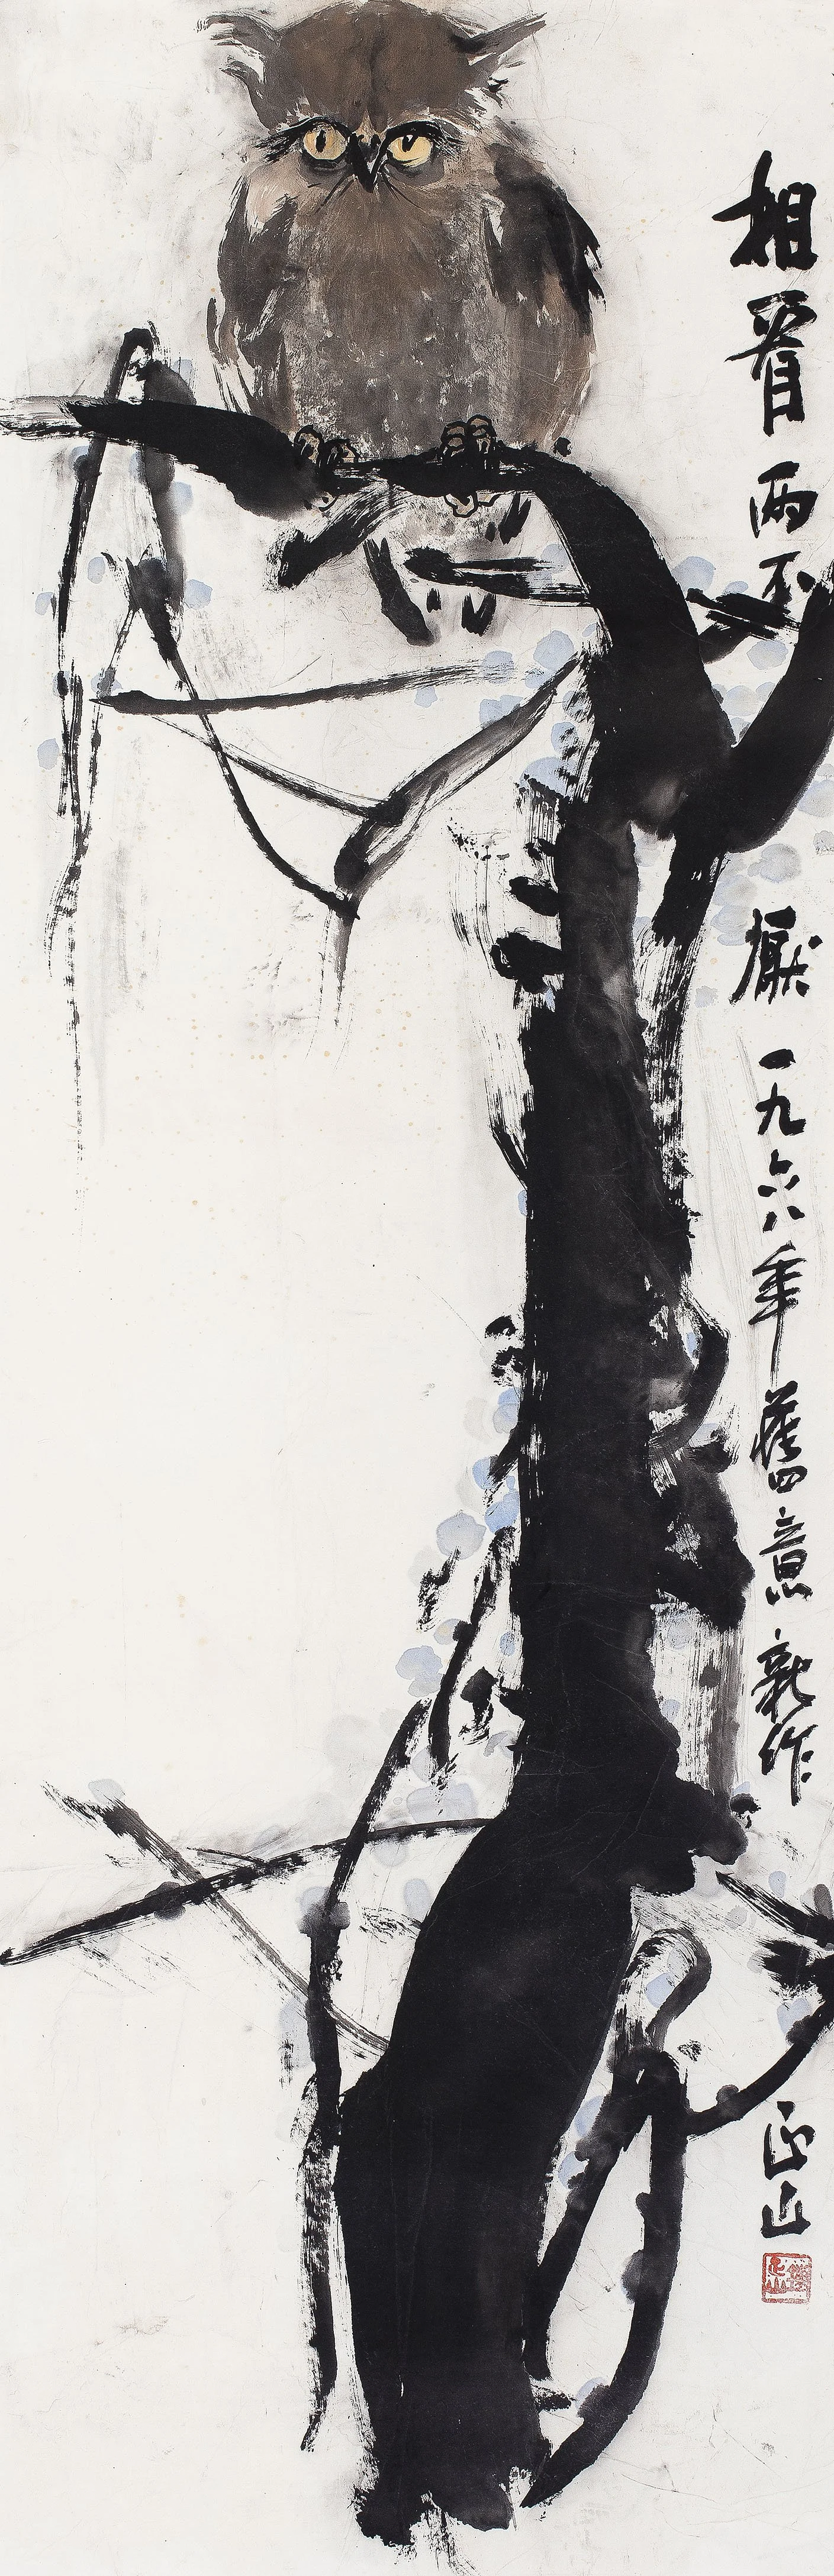 相看兩不厭 一九六八年舊意新作 正山